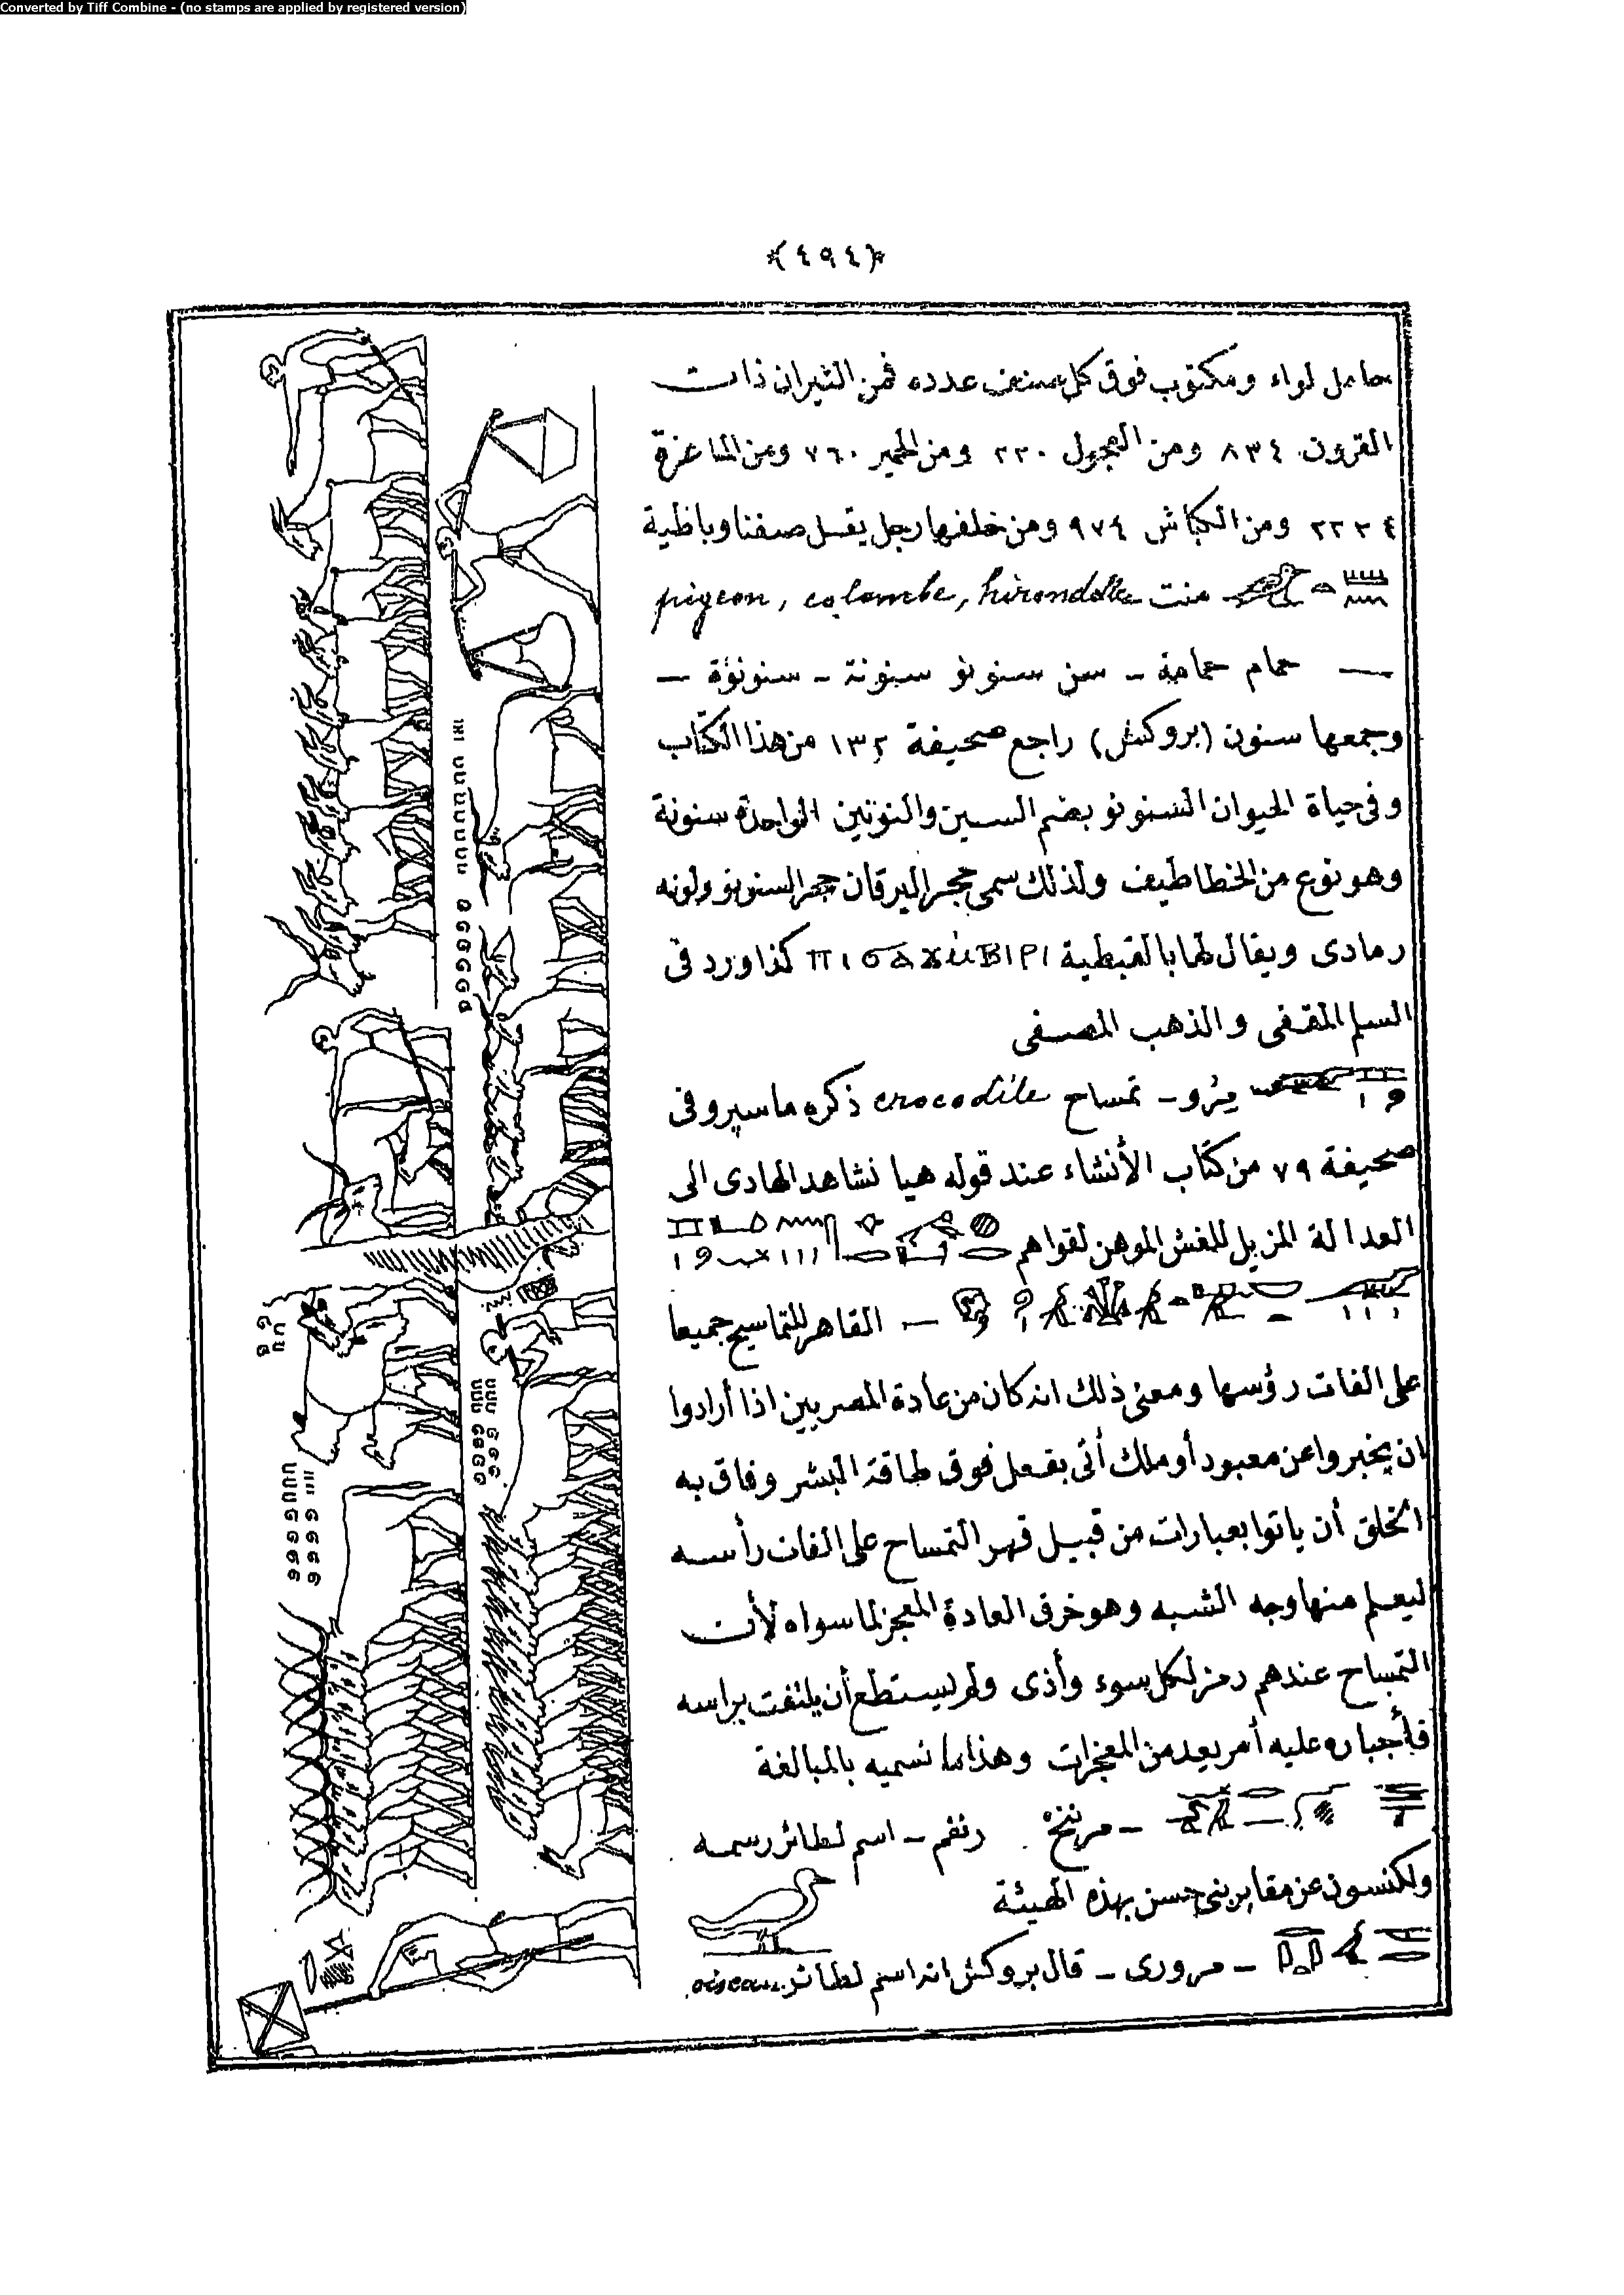 Converted by Tiff Combine - (no stamps are applied by registered version)
﴿٤٩٤﴾
حامل لواء ومكتوب فوق كل صنف عدده فمن الثيران ذات
القرون ٨٣٤ ومن العجول ٢٢٠ ومن الحمير ٧٦٠ ومن الماعزة
٢٢٣٤ ومن الكباش ٩٧٤ ومن خلفها رجل يقل ضفنا وباظية
منت pigeon, colombe, hirondelle
— حمام حمامة - سن سنونو سنونة - سنونؤة —
وجمعها سنون (بروكش) راجع صحيفة ١٣٢ من هذا الكتاب
وفى حياة الحيوان السنونو بضم السين والنونين الواحدة سنونة
وهو نوع من الخطاطيف ولذلك سمى حجر اليرقان حجر السنونو ولونه
رمادى ويقال لها بالقبطية كذا ورد فى
السلم المقفى والذهب المصفى
مزو - تمساح crocodile ذكره ماسپرو فى
صحيفة ٧٩ من كتاب الأنشاء عند قوله هيا نشاهد الهادى الى
العدالة المزيل للغش الموهن لقواهم
— القاهر للتماسيح جميعا
على الفات رؤسها ومعنى ذلك انه كان من عادة المصريين اذا أرادوا
ان يخبروا عن معبود أو ملك أتى بفعل فوق طاقة البشر وفاق به
الخلق أن ياتوا بعبارات من قبيل قهر التمساح على الفات رأسه
ليعلم منها وجه الشبه وهو خرق العادة المعجز لما سواه لأن
التمساح عندهم رمز لكل سوء وأذى ولم يستطع أن يلتفت براسه
فأجباره عليه أمر يعد من المعجزات وهذا ما نسميه بالمبالغة
- اسم لطائر رسمه
ولكنسون عن مقابر بنى حسن بهذه الهيئة
- مرورى - قال بروكش انه اسم لطائر oiseau.